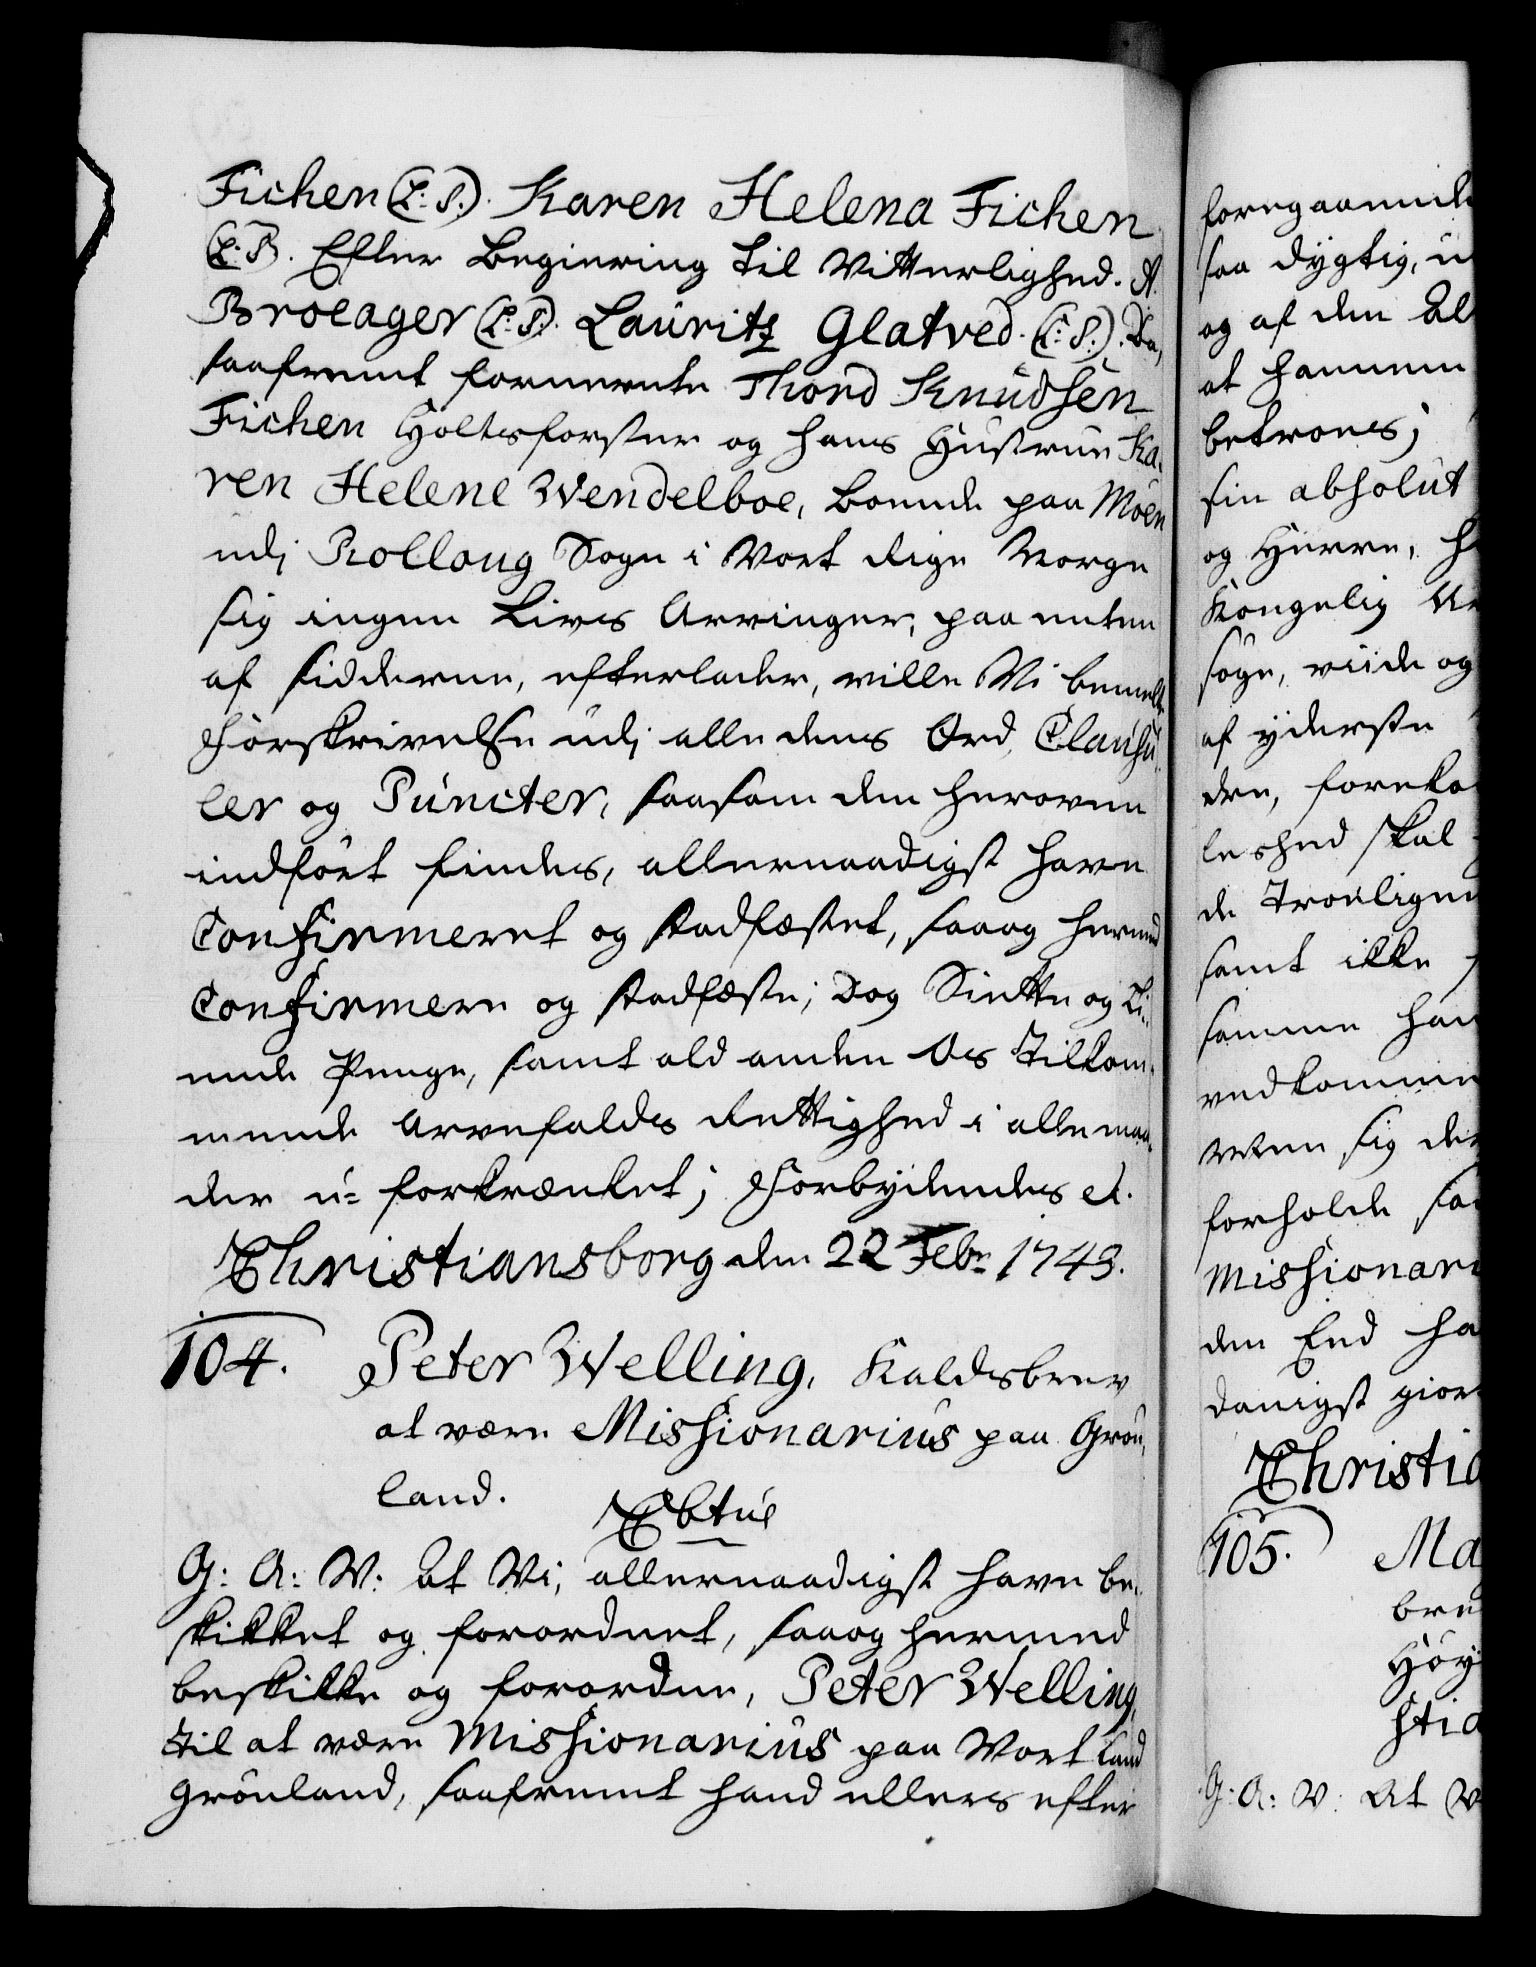 Fichen (L:S:). Karen Helena Fichen
(L:S). Efter Begiering til Vitterlighed. A.
Broeager (L:S:). Lauritz Glatved. (L:S:). Da,
saafremt fornevnte Thord Knudsen
Fichen Holtsforster og hans Hustrue Ka-
ren Helene Wendelboe, boende paa Moen
udj Rolloug Sogn i Vort Rige Norge
sig ingen Livs Arvinger, paa enten
af Sidderne, efterlader, ville Vi bemelte
Forskrivelse udj alle dens Ord, Clausu-
ler og Puncter, saasom den heroven
indført findes, allernaadigst have
Confirmeret og stadfæstet, saa og hermed
Confirmere og stadfæste; Dog Siette og Ti-
ende Penge, samt ald anden Os Tilkom-
mende Arvefalds Rettighed i alle maa-
der u-forkrænket; Forbydendes et.
Christiansborg den 22 Febr: 1743.
104. Peter Welling, Kaldsbrev
at være Missionarius paa Grøn-
land.
Ebtus
G: A: V: At Vi, allernaadigst have be-
skikket og forordnet, saa og hermed
beskikke og forordne, Peter Welling,
til at være Missionarius paa Vort Land
Grønland, saafremt hand ellers efter
foregaaende
saa dygtig, u
og af den Al
at hannem
betroes;
sin absolut
og Herre, H
Kongelig Ar
søge, viide og
af yderste
dre, foreko
leshed skal
de Troeligen
samt ikke
samme han
vedkomme
retten sig der
forholde sa
Missionari
den End ha
danigst gior
Christia
105. Ma
bre
Høy
stia
G: A: V: At V